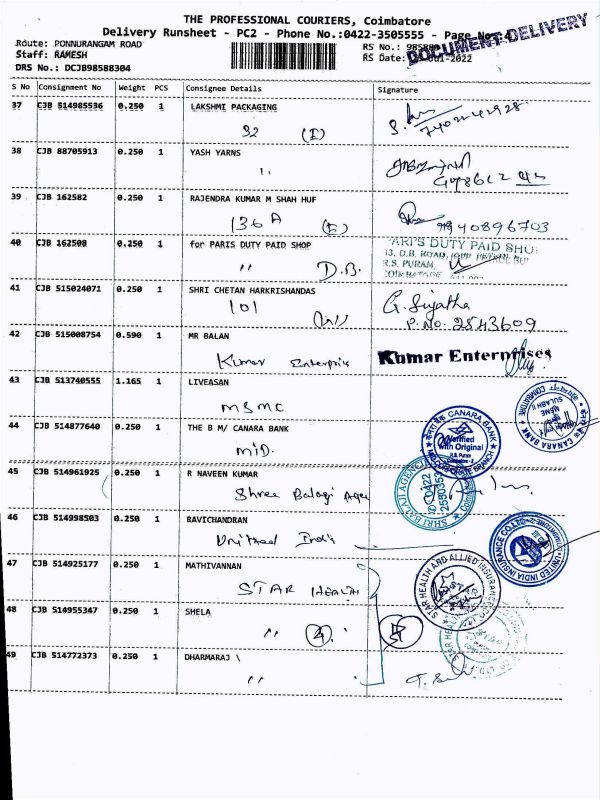 THE PROFESSIONAL COURIERS, Coimbatore
Delivery Runsheet - PC2 - Phone No.:0422-3505555 - Page No: 4
DOCUMENT DELIVERY
Route: PONNURANGAM ROAD
RS No.:
Staff: RAMESH
RS Date:
DRS No.: DCJB98588304
S No Consignment No Weight PCS Consignee Details Signature
37 CJB 514985536 0.250 1 LAKSHMI PACKAGING
32 (I)
38 CJB 88705913 0.250 1 YASH YARNS
39 CJB 162582 0.250 1 RAJENDRA KUMAR M SHAH HUF
136 A (E) 9940896703
40 CJB 162508 0.250 1 for PARIS DUTY PAID SHOP
PARI'S DUTY PAID SHO
13, D.B. ROAD,
R.S. PURAM,
" D.B.
41 CJB 515024071 0.250 1 SHRI CHETAN HARKRISHANDAS
101 G. Sujatha
P. No: 2543609
42 CJB 515008754 0.590 1 MR BALAN
Kumar Enterpris Kumar Enterprises
43 CJB 513740555 1.165 1 LIVEASAN
MSMC
44 CJB 514877640 0.250 1 THE B M/ CANARA BANK
MID.
CANARA BANK
Verified
with Original
CANARA BANK
45 CJB 514961925 0.250 1 R NAVEEN KUMAR
Shree Balagi Agen
SHRI BALAJI AGENC
0422
46 CJB 514998503 0.250 1 RAVICHANDRAN
United India
UNITED INDIA INSURANCE CO.LTD
47 CJB 514925177 0.250 1 MATHIVANNAN
STAR HEALTH
STAR HEALTH AND ALLIED INSURANCE CO
48 CJB 514955347 0.250 1 SHELA
" 4.
49 CJB 514772373 0.250 1 DHARMARAJ \
"